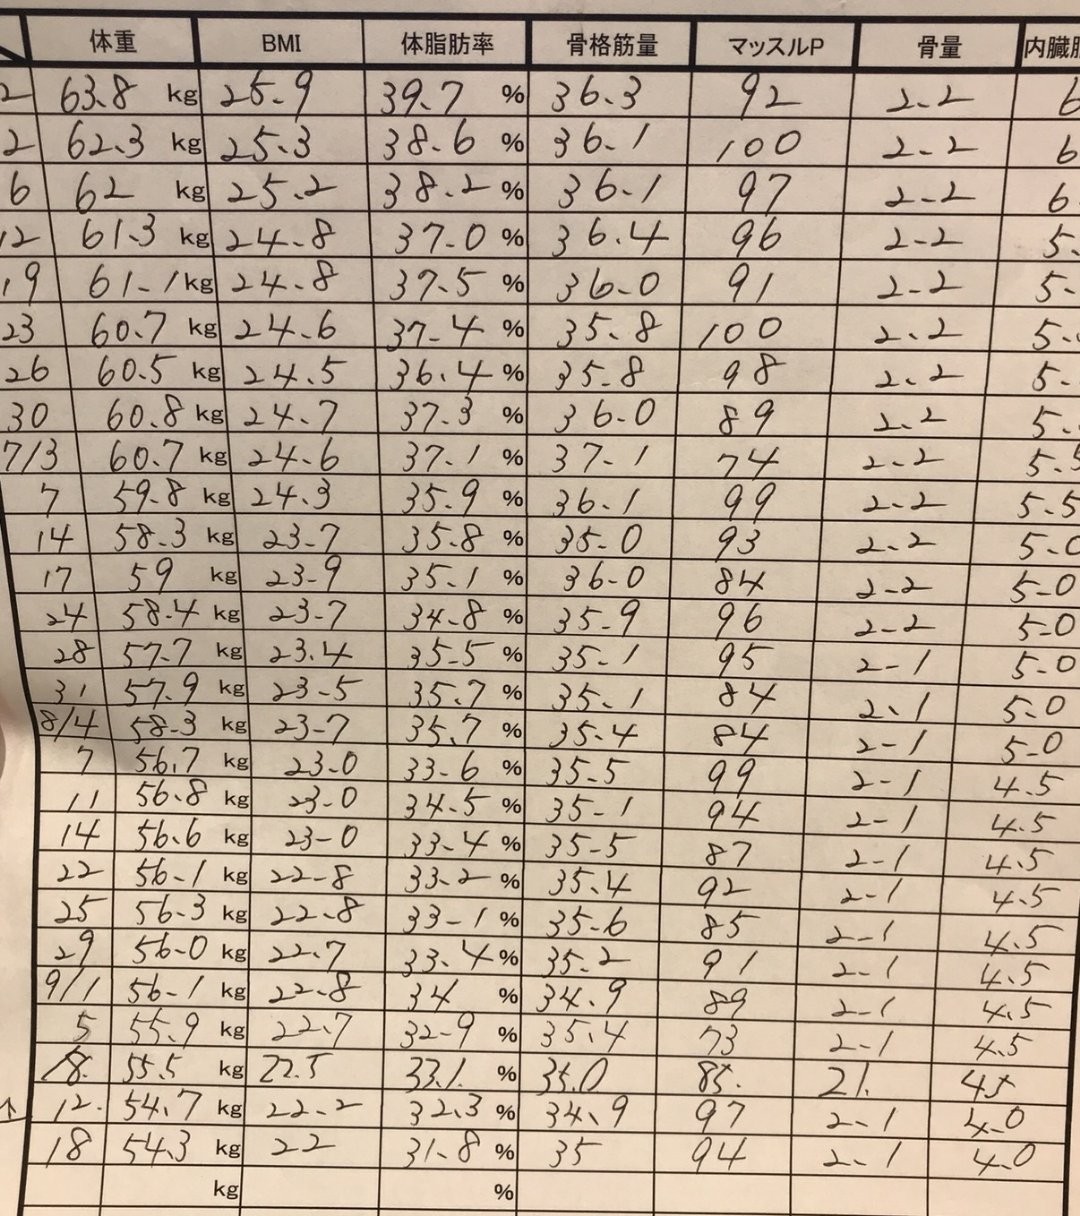 体重 BMI 体脂肪率 骨格筋量 マッスルP 骨量 内臓
2 63.8 kg 25.9 39.7 % 36.3 92 2.2 6
2 62.3 kg 25.3 38.6 % 36.1 100 2.2 6
6 62 kg 25.2 38.2 % 36.1 97 2.2 6.
12 61.3 kg 24.8 37.0 % 36.4 96 2.2 5.
19 61.1 kg 24.8 37.5 % 36.0 91 2.2 5.
23 60.7 kg 24.6 37.4 % 35.8 100 2.2 5.
26 60.5 kg 24.5 36.4 % 35.8 98 2.2 5.
30 60.8 kg 24.7 37.3 % 36.0 89 2.2 5.
7/3 60.7 kg 24.6 37.1 % 37.1 74 2.2 5.5
7 59.8 kg 24.3 35.9 % 36.1 99 2.2 5.5
14 58.3 kg 23.7 35.8 % 35.0 93 2.2 5.0
17 59 kg 23.9 35.1 % 36.0 84 2.2 5.0
24 58.4 kg 23.7 34.8 % 35.9 96 2.2 5.0
28 57.7 kg 23.4 35.5 % 35.1 95 2.1 5.0
31 57.9 kg 23.5 35.7 % 35.1 84 2.1 5.0
8/4 58.3 kg 23.7 35.7 % 35.4 84 2.1 5.0
7 56.7 kg 23.0 33.6 % 35.5 99 2.1 4.5
11 56.8 kg 23.0 34.5 % 35.1 94 2.1 4.5
14 56.6 kg 23.0 33.4 % 35.5 87 2.1 4.5
22 56.1 kg 22.8 33.2 % 35.4 92 2.1 4.5
25 56.3 kg 22.8 33.1 % 35.6 85 2.1 4.5
29 56.0 kg 22.7 33.4 % 35.2 91 2.1 4.5
9/1 56.1 kg 22.8 34 % 34.9 89 2.1 4.5
5 55.9 kg 22.7 32.9 % 35.4 73 2.1 4.5
8. 55.5 kg 22.5 33.1. % 35.0 85. 21. 45
12. 54.7 kg 22.2 32.3 % 34.9 97 2.1 4.0
18 54.3 kg 22 31.8 % 35 94 2.1 4.0
kg %